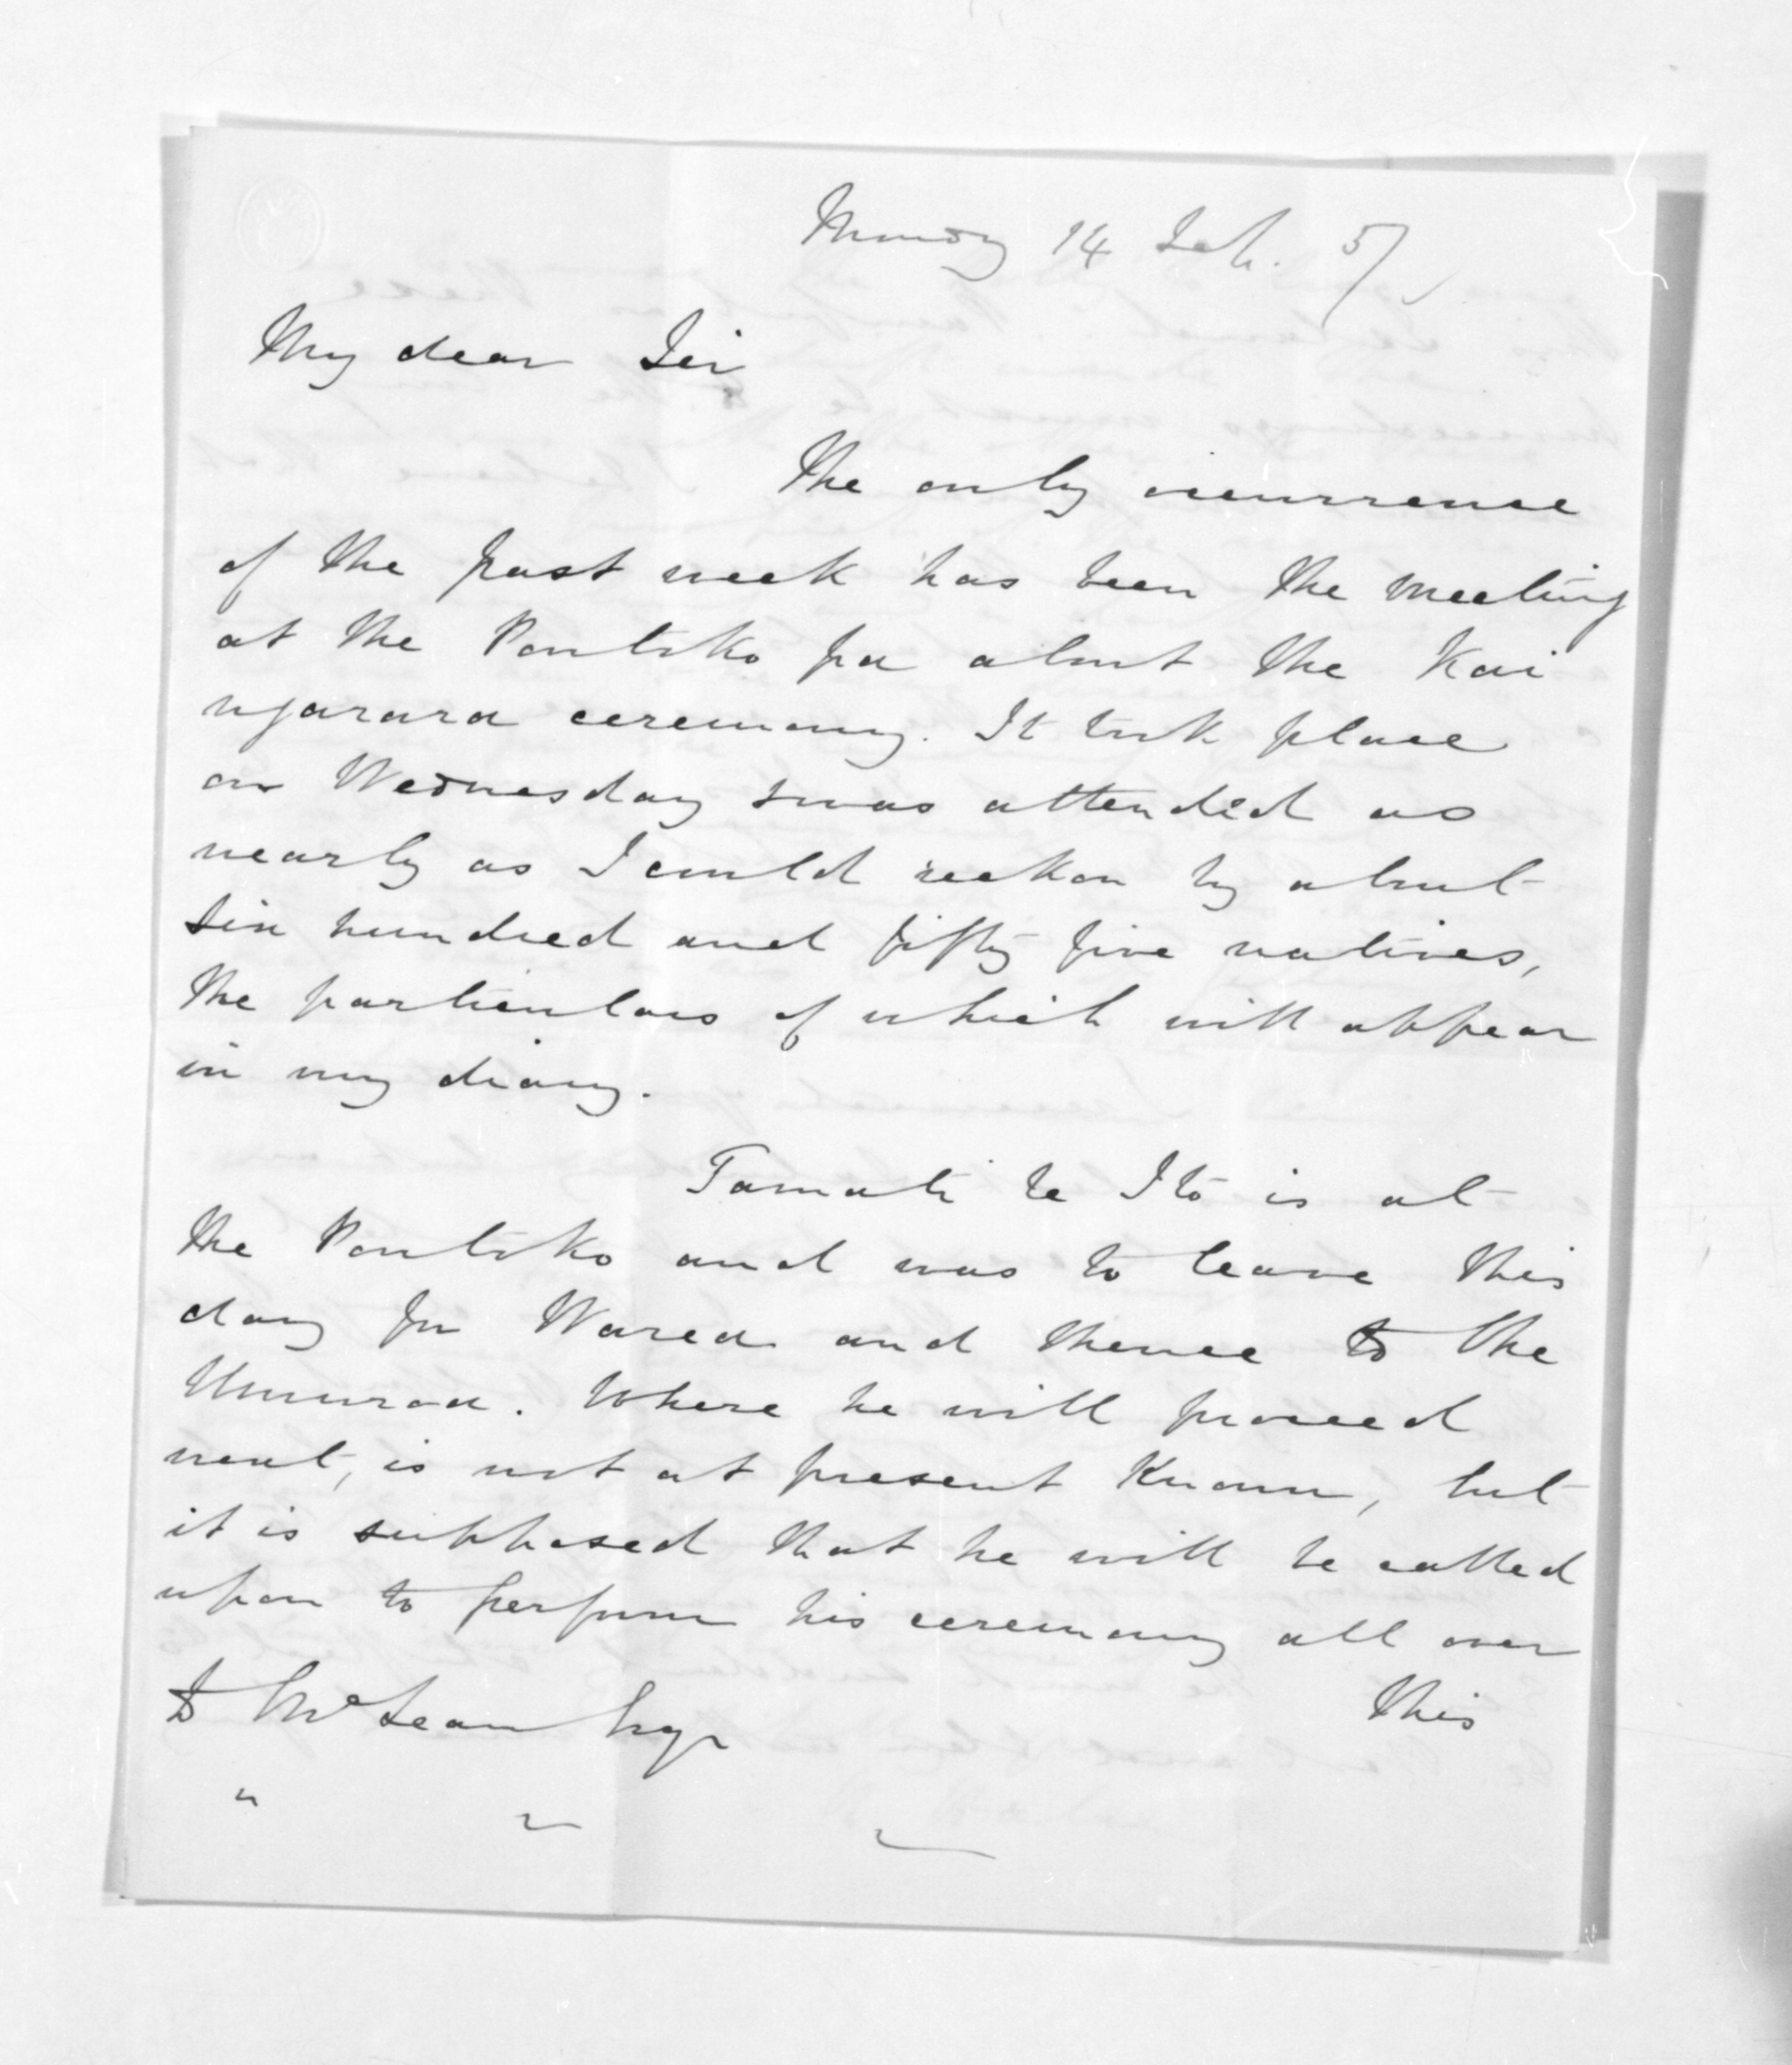 Monday 14 Feb. 57
My dear Sir
The only occurrence
of the past week has been the meeting
at the Poutoko pa about the Kai
ngarara ceremony. It took place
on Wednesday & was attended as
nearly as I could reckon by about
six hundred and fifty five natives,
the particulars of which will appear
in my diary.
Tamati te Ito is at
the Poutoko and was to leave this
day for Warea and thence to the
Umuroa. Where he will proceed
next, is not at present known, but
it is supposed that he will be called
upon to perform his ceremony all over
this
D McLean Esqr
" " "